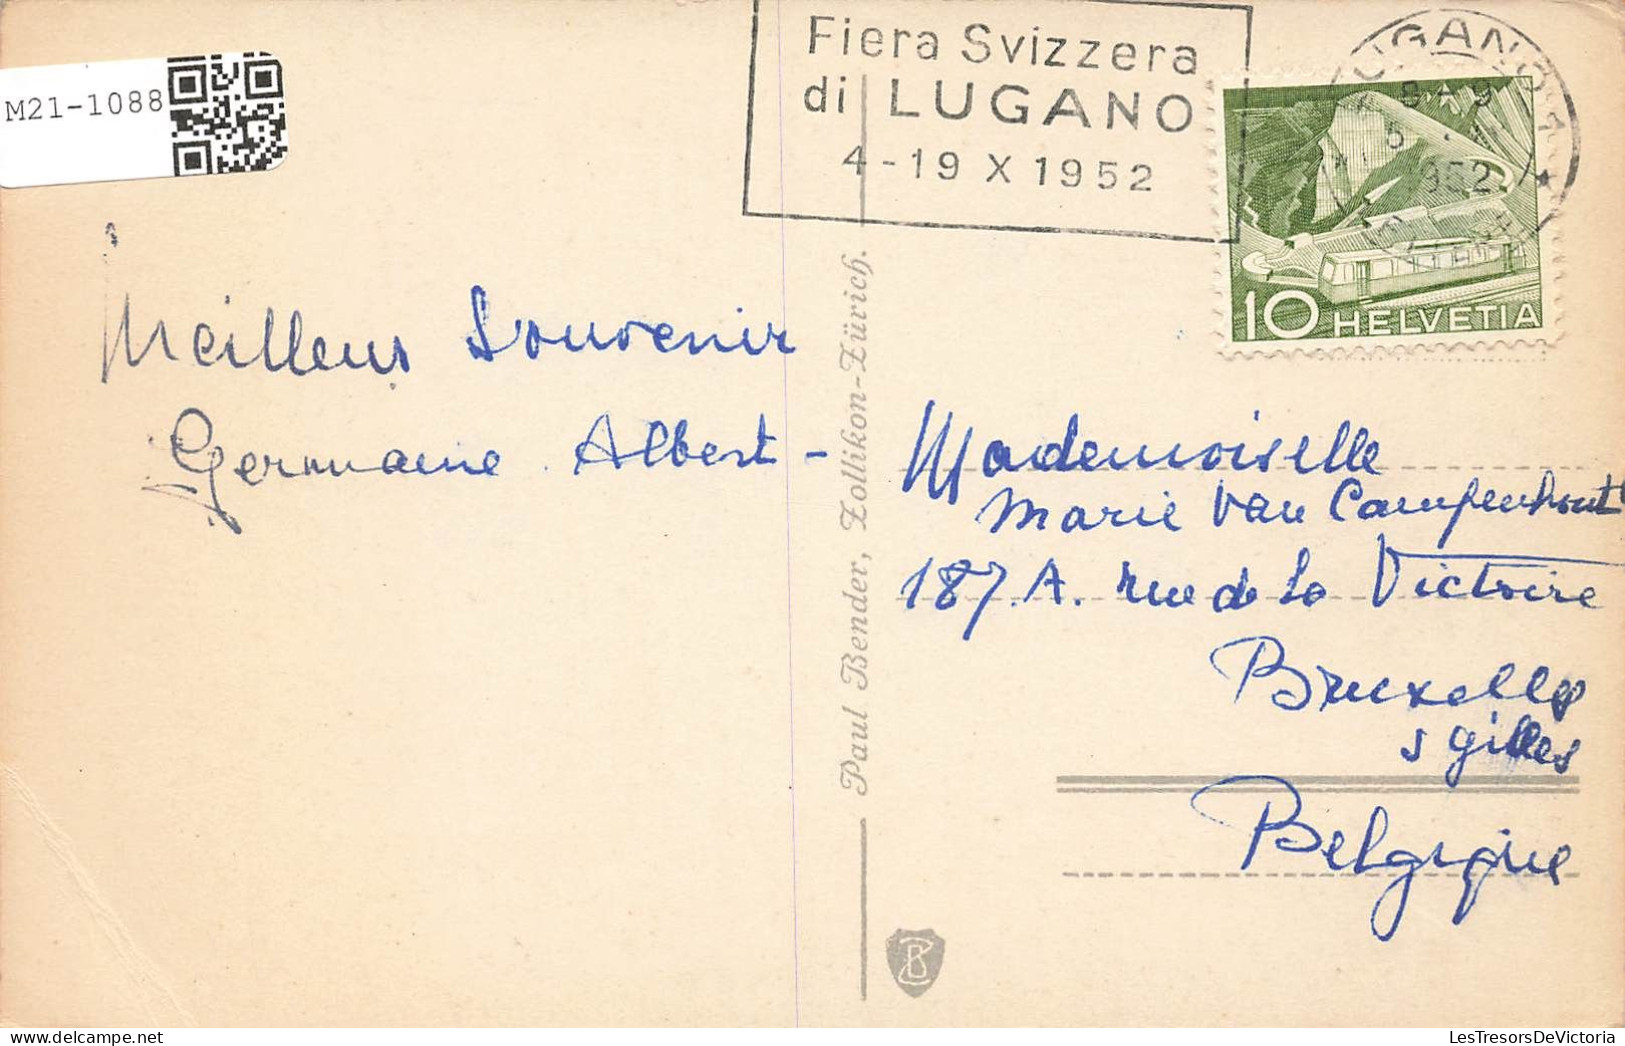 M21-1088
Fiera Svizzera
di LUGANO
4-19 X 1952
LUGANO 1
1952
10 HELVETIA
Meilleur Souvenir
Germaine Albert -
Paul Bender, Zollikon-Zürich.
Mademoiselle
Marie Van Campenhout
187 A. rue de la Victoire
Bruxelles
s gilles
Belgique
LesTresorsDeVictoria